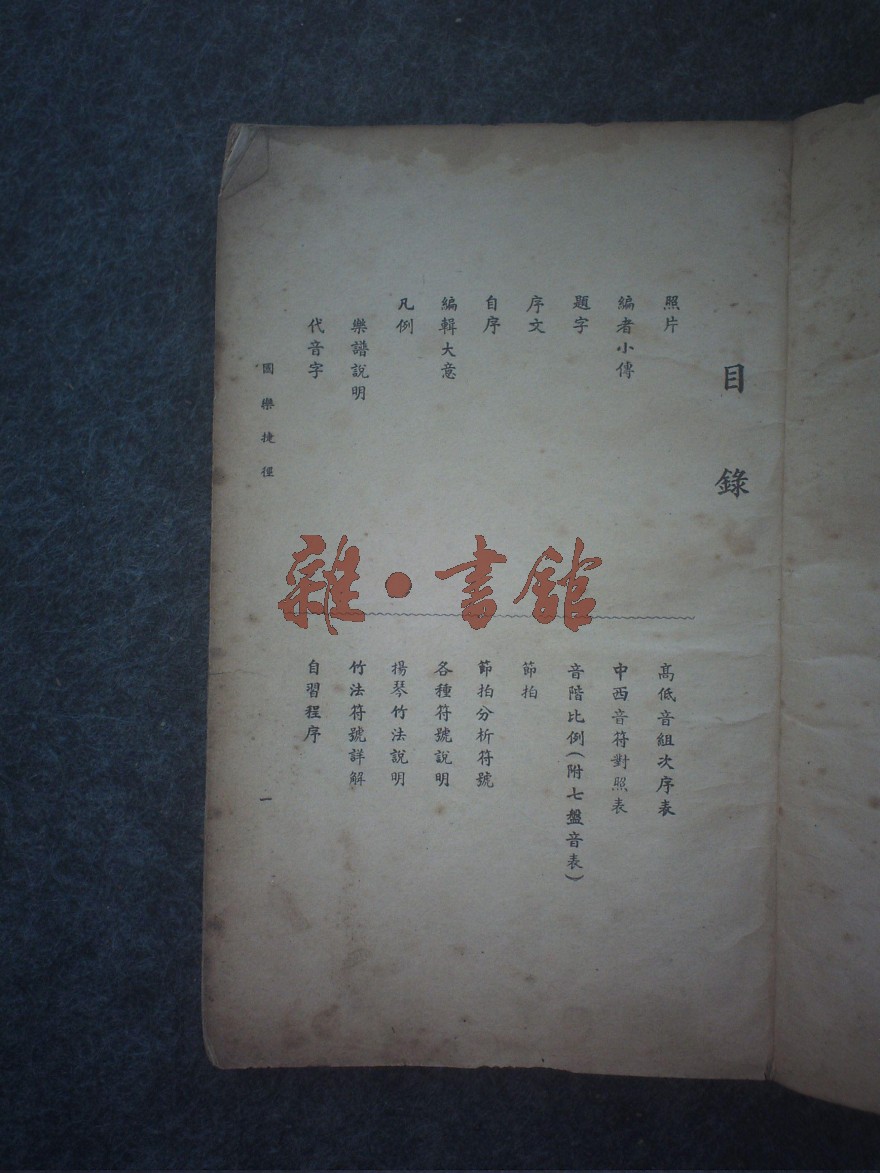 目錄
照片
編者小傳
題字
序文
自序
編輯大意
凡例
樂譜說明
代音字
高低音組次序表
中西音符對照表
音階比例(附七盤音表)
節拍
節拍分析符號
各種符號說明
揚琴竹法說明
竹法符號詳解
自習程序
國樂捷徑
一
雜·書館